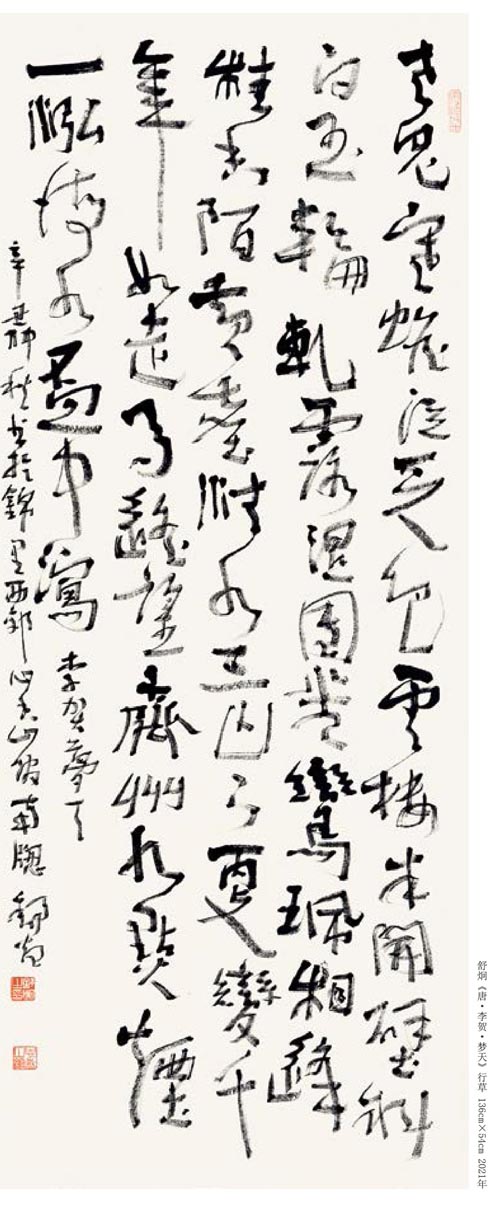 老兔寒蟾泣天色雲樓半開壁斜
白玉輪軋露濕團光鸞珮相逢
桂香陌黄塵清水三山下更變千
年如走馬遥望齊州九點煙
一泓海水杯中瀉 李賀夢天
辛丑秋書於錦里西鄰山館南牕 舒炯
舒炯《唐·李贺·梦天》行草 136cm×54cm 2021年